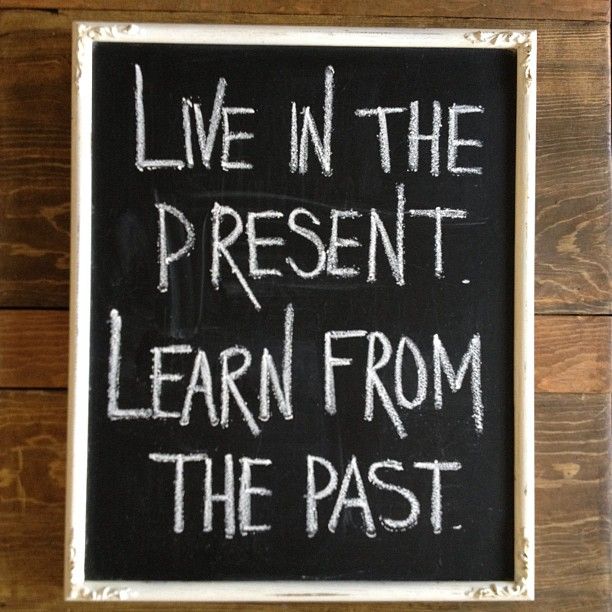 LIVE IN THE
PRESENT.
LEARN FROM
THE PAST.